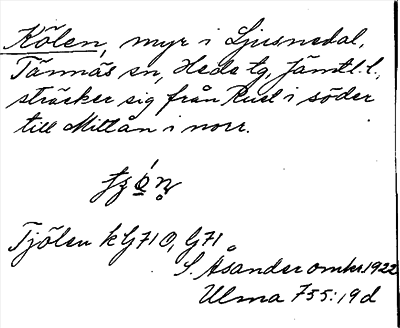 Kölen, myr i Ljusnedal,
Tännäs sn, Heda tg, Jämtl. l.,
sträcker sig från Rust i söder
till Mittån i norr.
Tjölen k G71 O, G71
S. Åsander omkr 1922
Ulma 755:19d